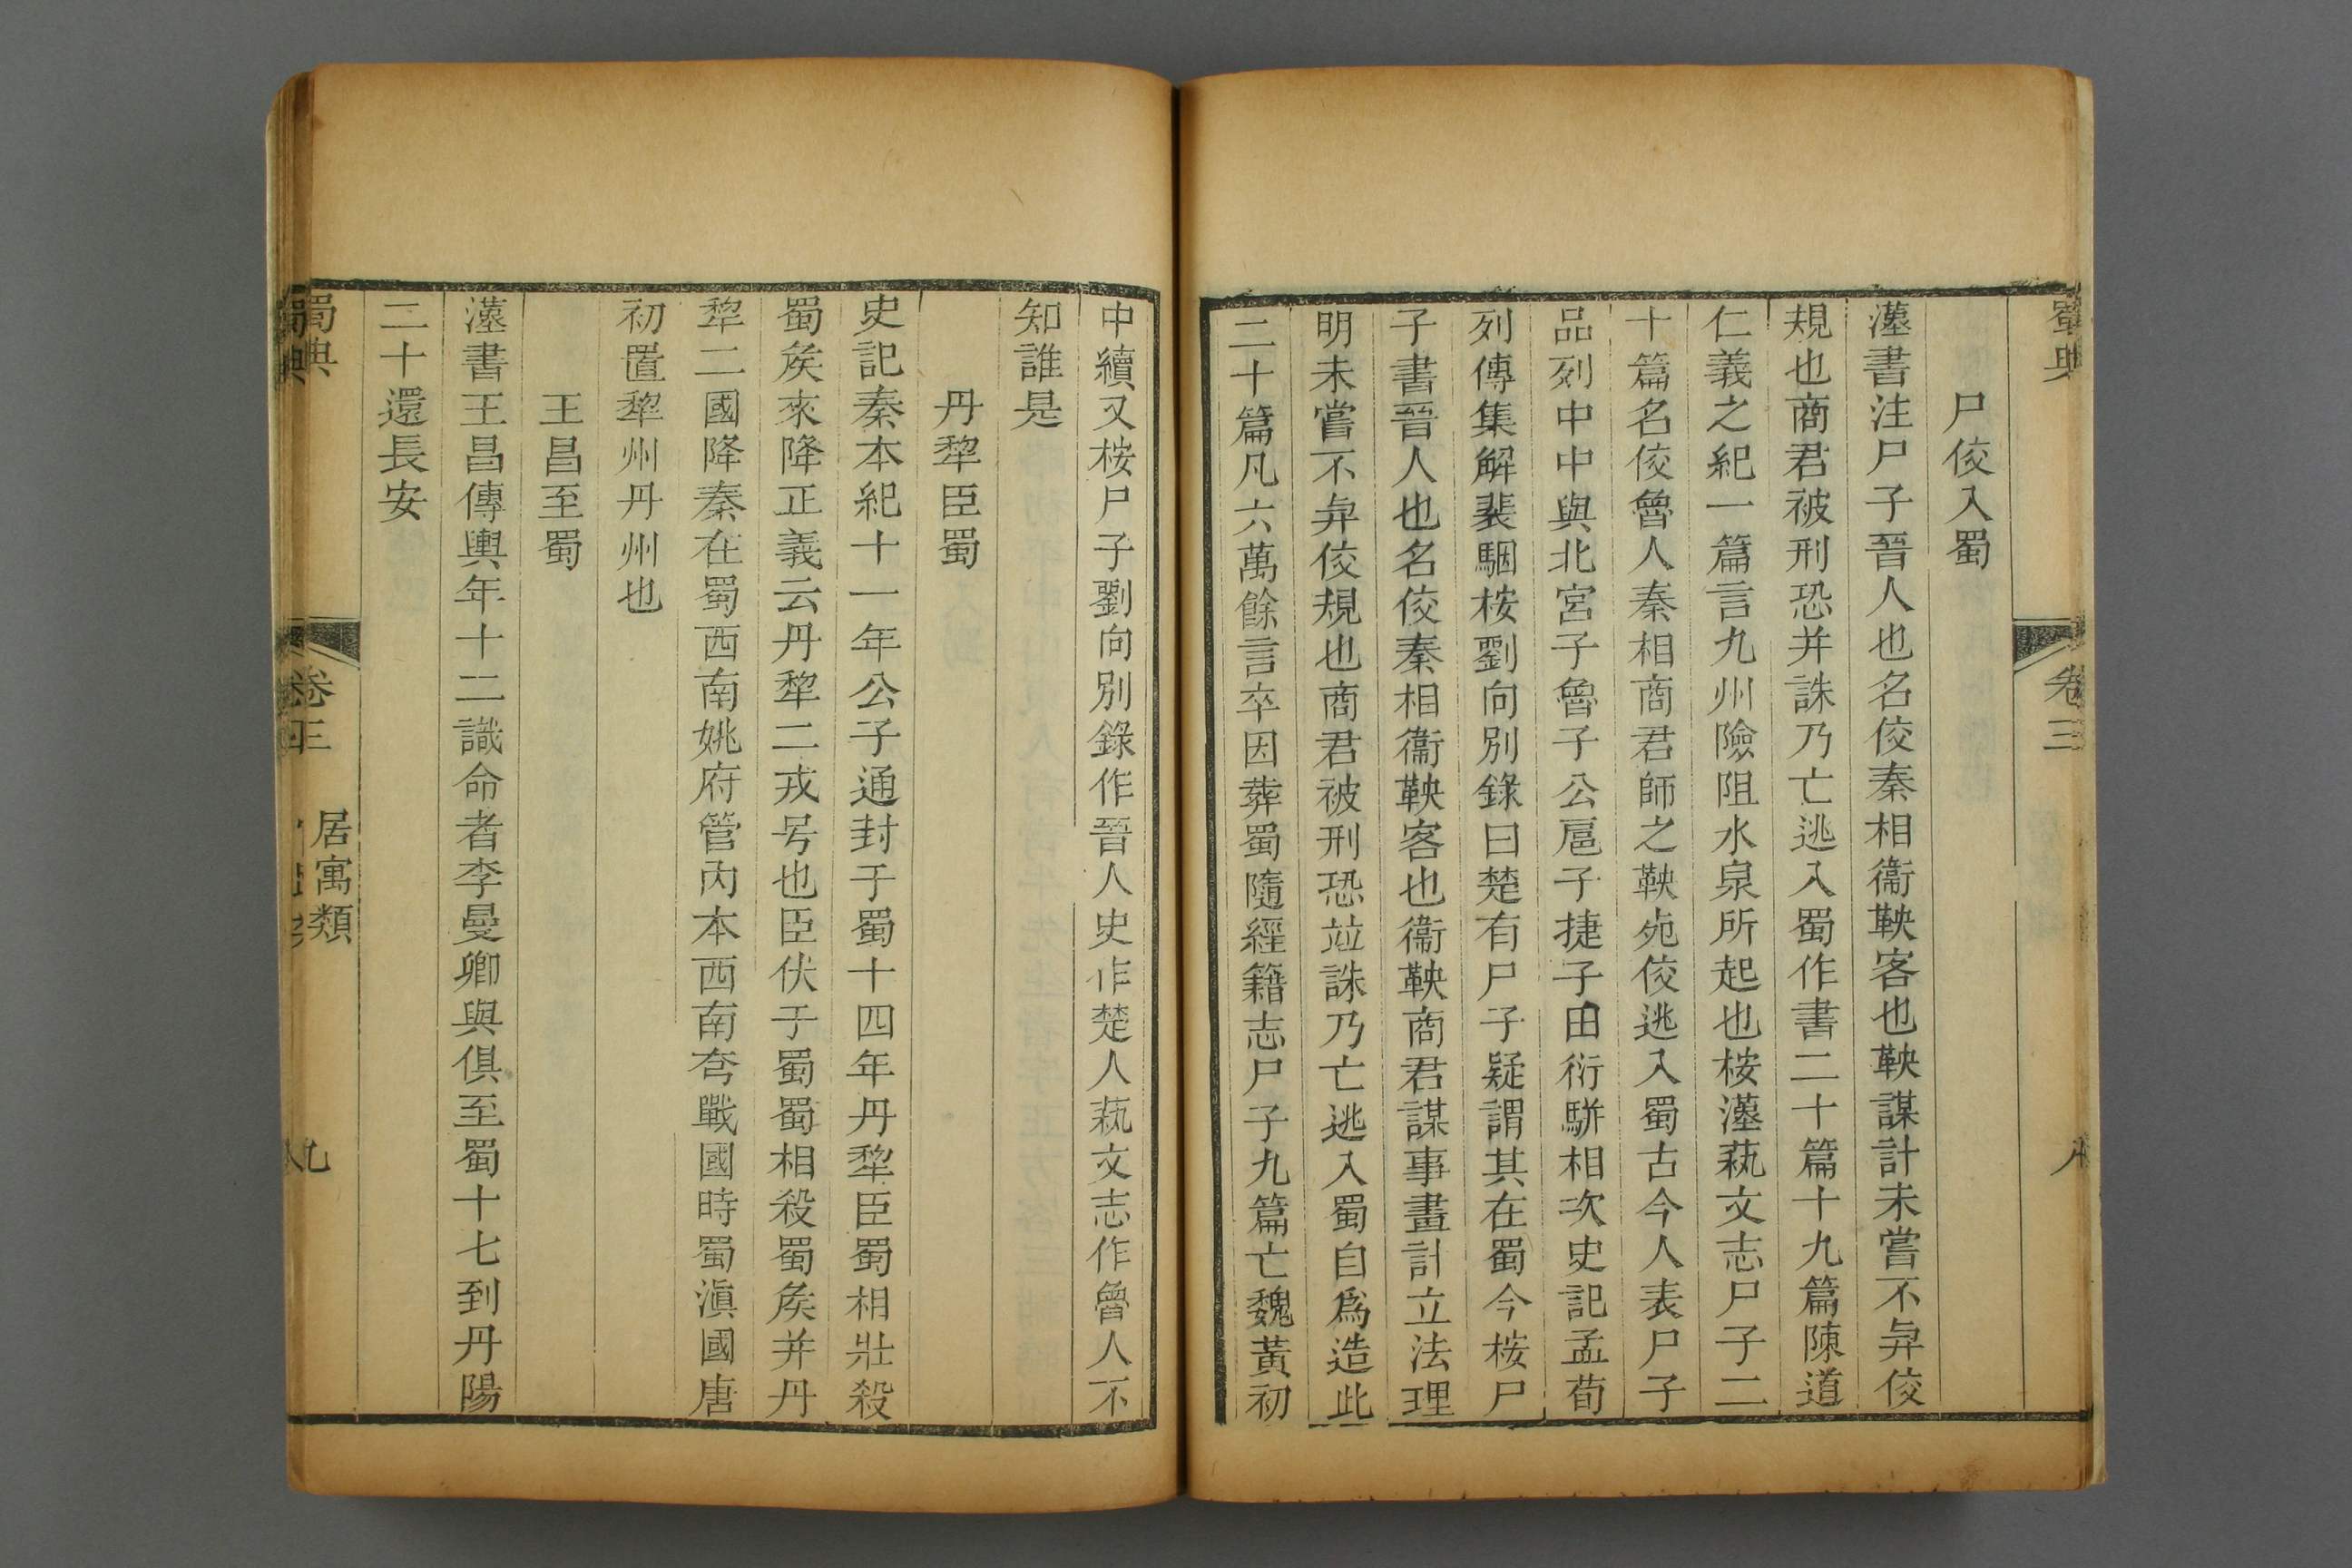 蜀典
卷三
八
尸佼入蜀
漢書注尸子晉人也名佼秦相衞鞅客也鞅謀計未嘗不與佼
規也商君被刑恐并誅乃亡逃入蜀作書二十篇十九篇陳道
仁義之紀一篇言九州險阻水泉所起也桉漢蓺文志尸子二
十篇名佼魯人秦相商君師之鞅死佼逃入蜀古今人表尸子
品列中中與北宮子魯子公扈子捷子田衍騈相次史記孟荀
列傳集解裴駰桉劉向別錄曰楚有尸子疑謂其在蜀今桉尸
子書晉人也名佼秦相衞鞅客也衞鞅商君謀事畫計立法理
明未嘗不與佼規也商君被刑恐竝誅乃亡逃入蜀自爲造此
二十篇凡六萬餘言卒因葬蜀隨經籍志尸子九篇亡魏黃初
中續又桉尸子劉向別錄作晉人史作楚人蓺文志作魯人不
知誰是
丹犂臣蜀
史記秦本紀十一年公子通封于蜀十四年丹犂臣蜀相壯殺
蜀矦來降正義云丹犂二戎号也臣伏于蜀蜀相殺蜀矦并丹
犂二國降秦在蜀西南姚府管內本西南夸戰國時蜀滇國唐
初置犂州丹州也
王昌至蜀
漢書王昌傳輿年十二識命者李曼卿與俱至蜀十七到丹陽
二十還長安
蜀典
卷三
居寓類
九